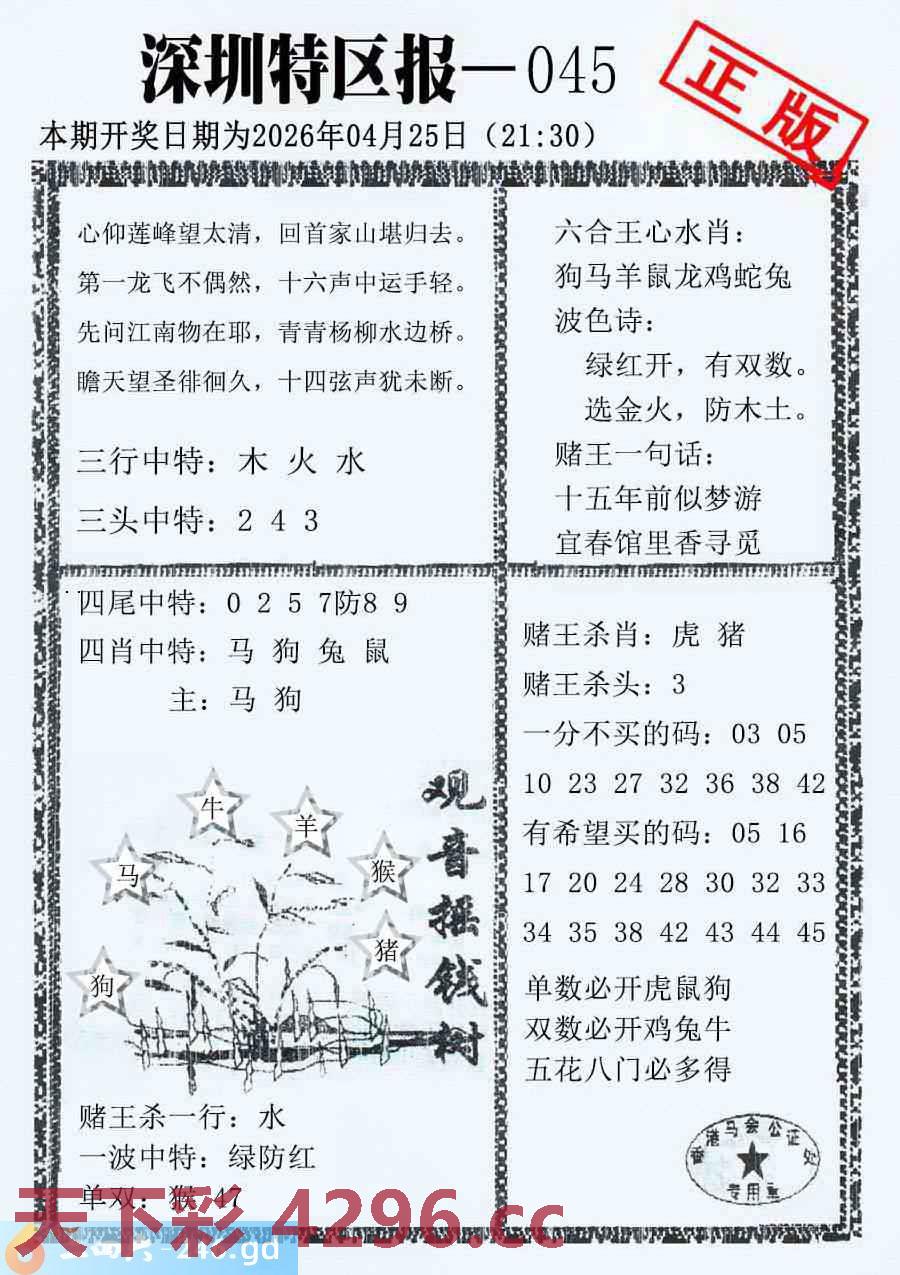 深圳特区报－045
正版
本期开奖日期为2026年04月25日（21:30）
心仰莲峰望太清，回首家山堪归去。
第一龙飞不偶然，十六声中运手轻。
先问江南物在耶，青青杨柳水边桥。
瞻天望圣徘徊久，十四弦声犹未断。
三行中特：木 火 水
三头中特：2 4 3
六合王心水肖：
狗马羊鼠龙鸡蛇兔
波色诗：
绿红开，有双数。
选金火，防木土。
赌王一句话：
十五年前似梦游
宜春馆里香寻觅
四尾中特：0 2 5 7防8 9
四肖中特：马 狗 兔 鼠
主：马 狗
牛
羊
马
猴
猪
狗
观音摇钱树
赌王杀一行：水
一波中特：绿防红
单双：猴 47
赌王杀肖：虎 猪
赌王杀头：3
一分不买的码：03 05
10 23 27 32 36 38 42
有希望买的码：05 16
17 20 24 28 30 32 33
34 35 38 42 43 44 45
单数必开虎鼠狗
双数必开鸡兔牛
五花八门必多得
香港马会公证处
专用章
天下彩4296.cc